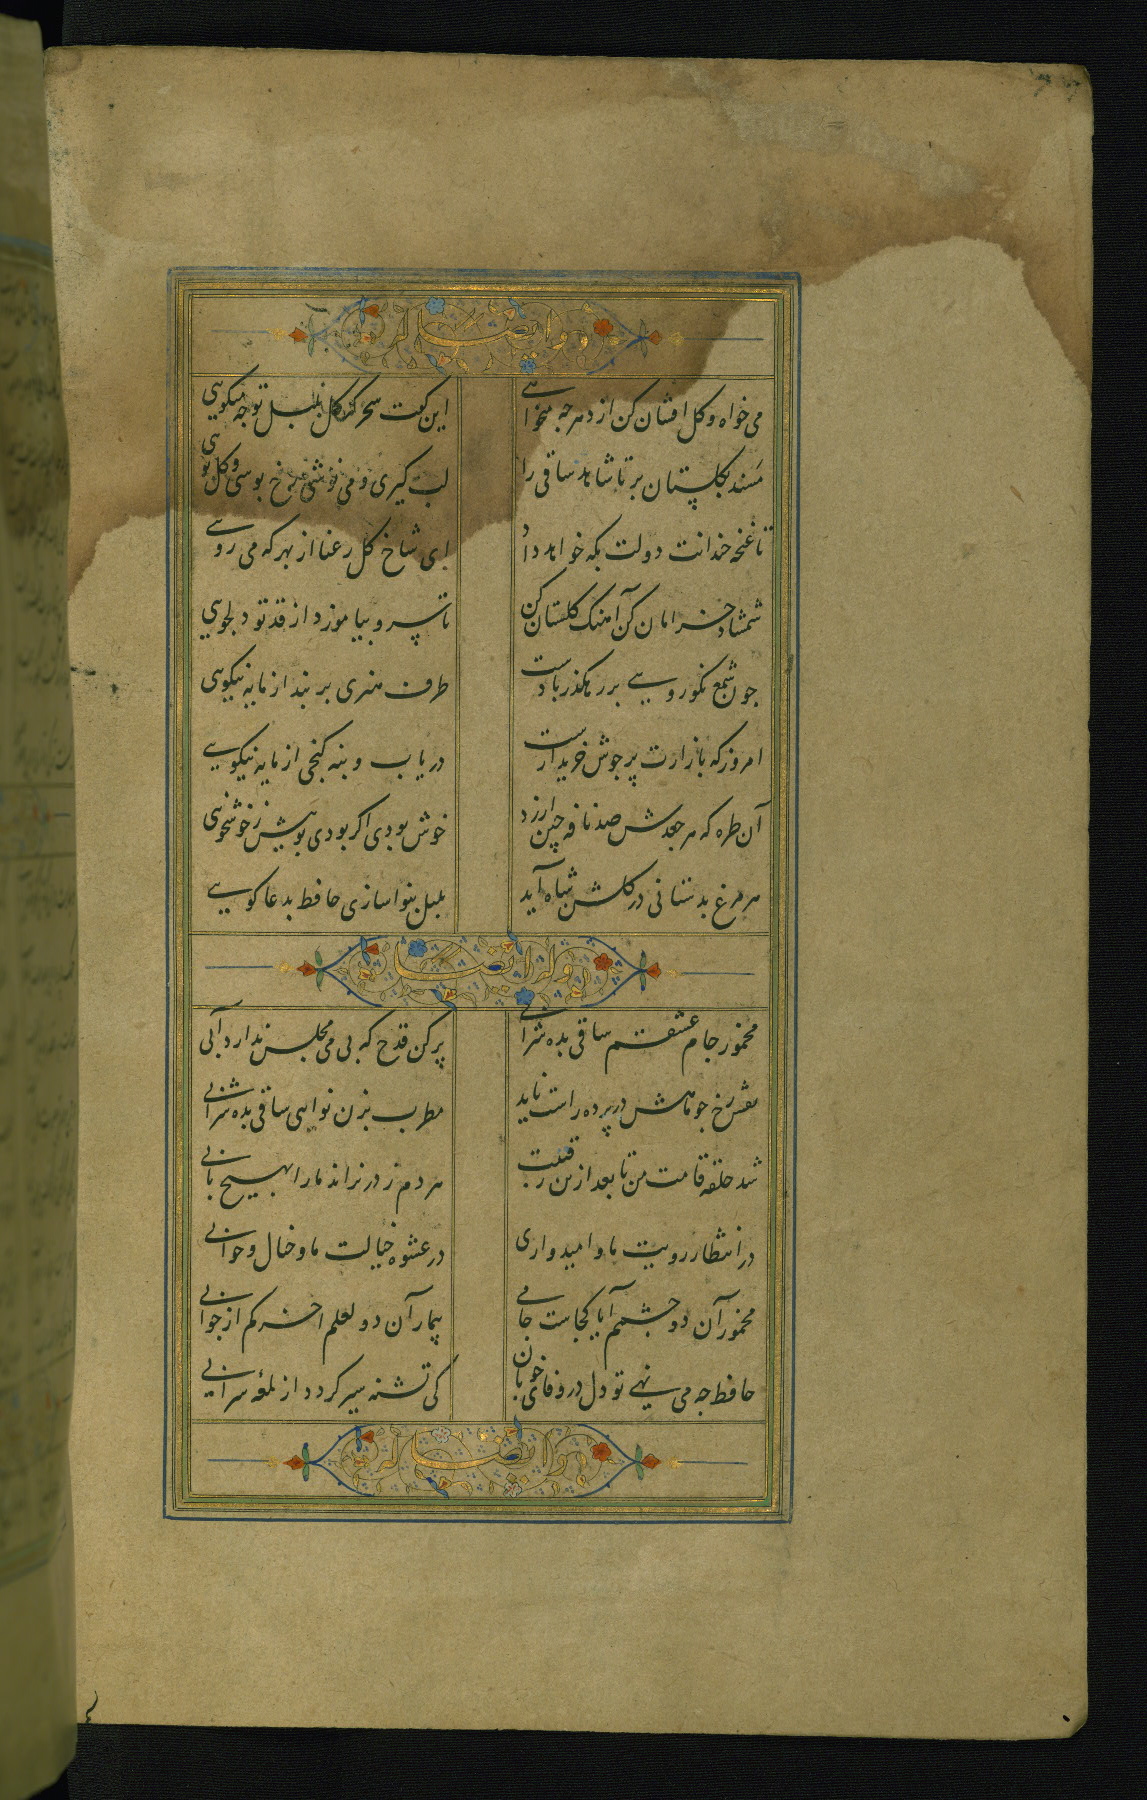 و له ایضا
می خواه و کل افشان کن از دهر چه میخواهی
این کفت سحرکه کل بلبل تو چه میکویی
مسند بکلستان بر تا شاهد و ساقی را
لب کیری و می نوشی رخ بوسی و کل بویی
تا غنچه خندانت دولت بکه خواهد داد
ای شاخ کل رعنا از بهر که می رویی
شمشاد خرامان کن آهنک کلستان کن
تا سرو بیاموزد از قد تو دلجویی
چون شمع نکورویی بر رهکذر بادست
طرف هنری بربند از مایه نیکویی
امروز که بازارت پر جوش خریدارست
دریاب و بنه کنجی از مایه نیکویی
آن طره که هر جعدش صد نافه چین ارزد
خوش بودی اکر بودی بوییش ز خوشخویی
هر مرغ بدستانی در کلشن شاه آید
بلبل بنواسازی حافظ بدعاکویی
و له ایضا
مخمور جام عشقم ساقی بده شرابی
پر کن قدح که بی می مجلس ندارد آبی
عشق رخ چو ماهش در پرده راست ناید
مطرب بزن نوایی ساقی بده شرابی
شد حلقه قامت من تا بعد ازین رقیبت
هر دم ز در نراند ما را بهیچ بابی
در انتظار رویت ما و امیدواری
در عشوه خیالت ما و خیال و خوابی
مخمور آن دو چشمم آیا کجاست جامی
بیمار آن دو لعلم آخر کم از جوابی
حافظ چه می نهی تو دل در وفای خوبان
کی تشنه سیر کردد از لمعه سرابی
و له ایضا